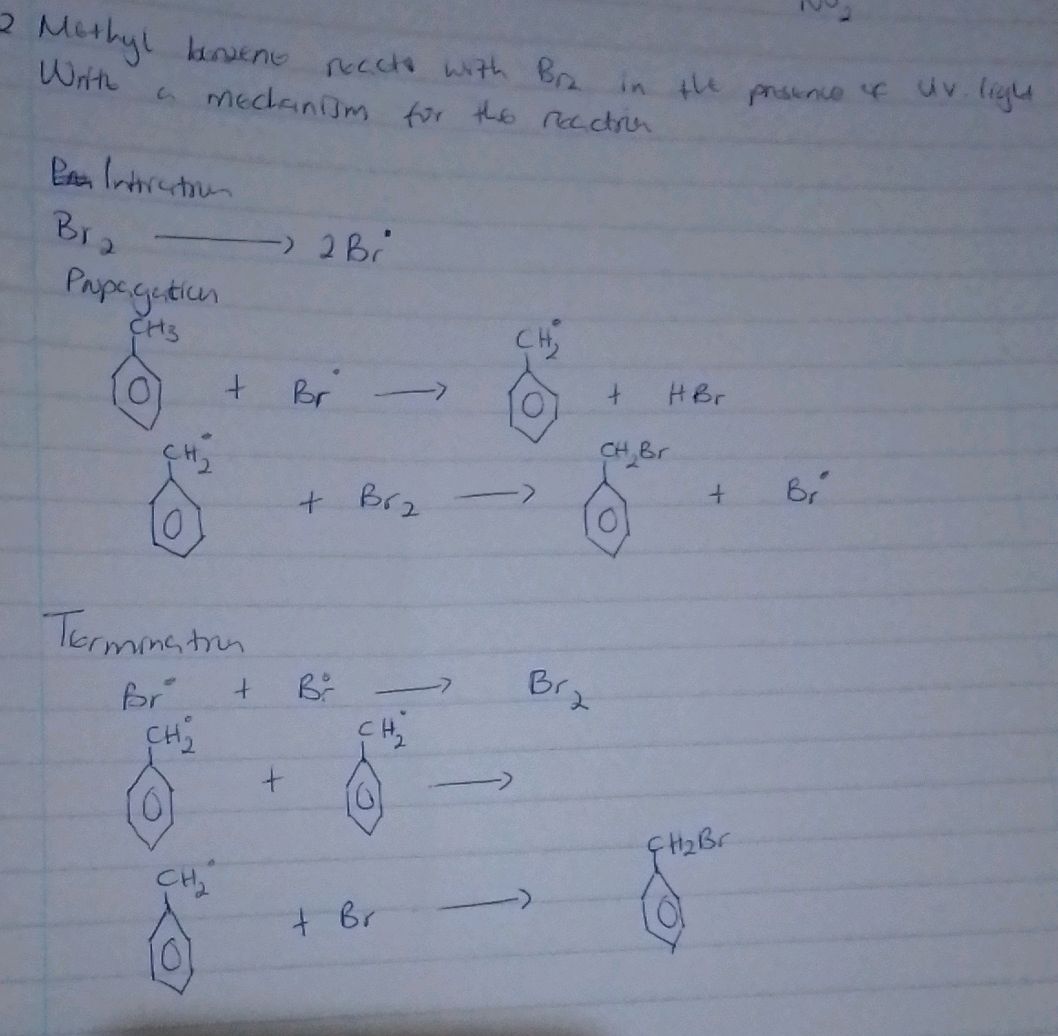 NO2
2 Methyl benzene reacts with Br2 in the presence of UV. light
Write a mechanism for the reaction
Initiation
Br2 → 2Br•
Propagation
CH3 + Br• → CH2• + HBr
CH2• + Br2 → CH2Br + Br•
Termination
Br• + Br• → Br2
CH2• + CH2• →
CH2• + Br → CH2Br